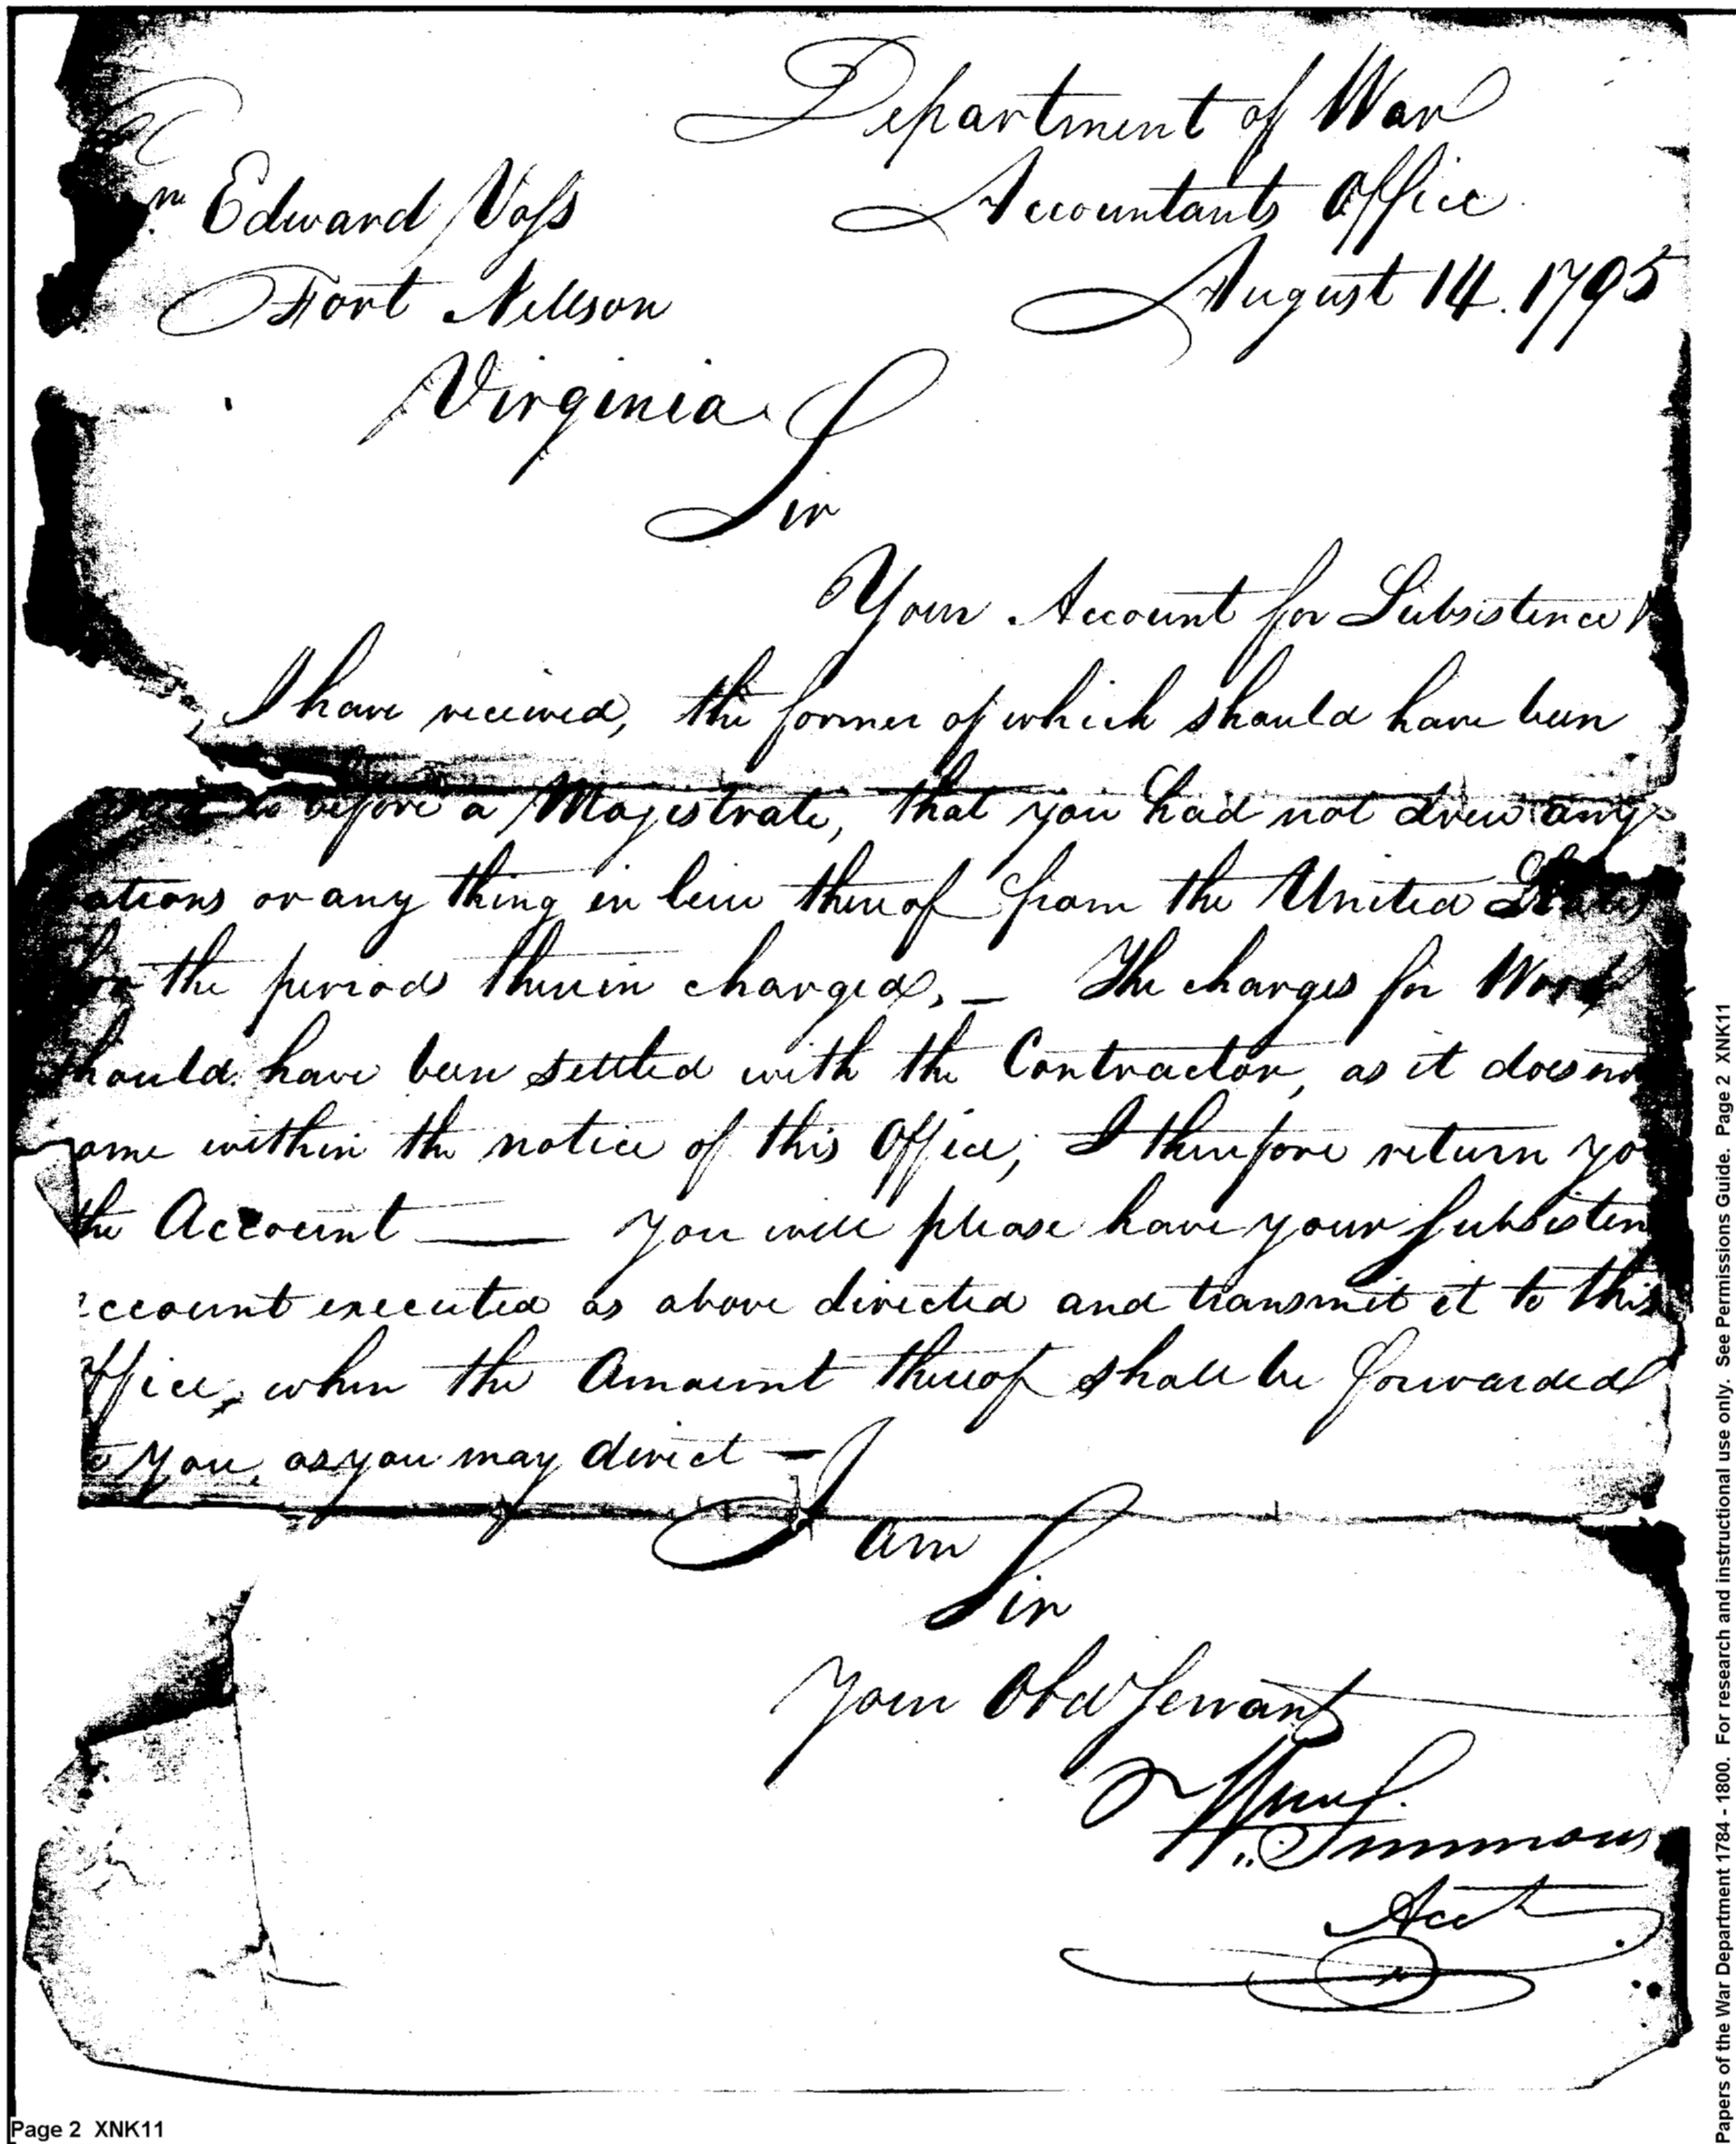 Department of War
m Edward Voss
Accountants Office
Fort Nellson
August 14. 1795
Virginia
Sir
Your Account for Subsistence
I have received, the former of which should have been
to before a Magistrate, that you had not drew any
ations or any thing in lieu thereof from the United States
for the period therein charged. — The charges for Wood
should have been settled with the Contractor, as it does no
ome within the notice of this Office, I therefore return yo
the Account — you will please have your Subsisten
ccount executed as above directed and transmit it to this
ffice, when the Amount thereof shall be forwarded
to you, as you may direct —
I am
Sir
Your Obd Servant
Wm Simmons
Acct
Page 2 XNK11
Papers of the War Department 1784 - 1800. For research and instructional use only. See Permissions Guide. Page 2 XNK11